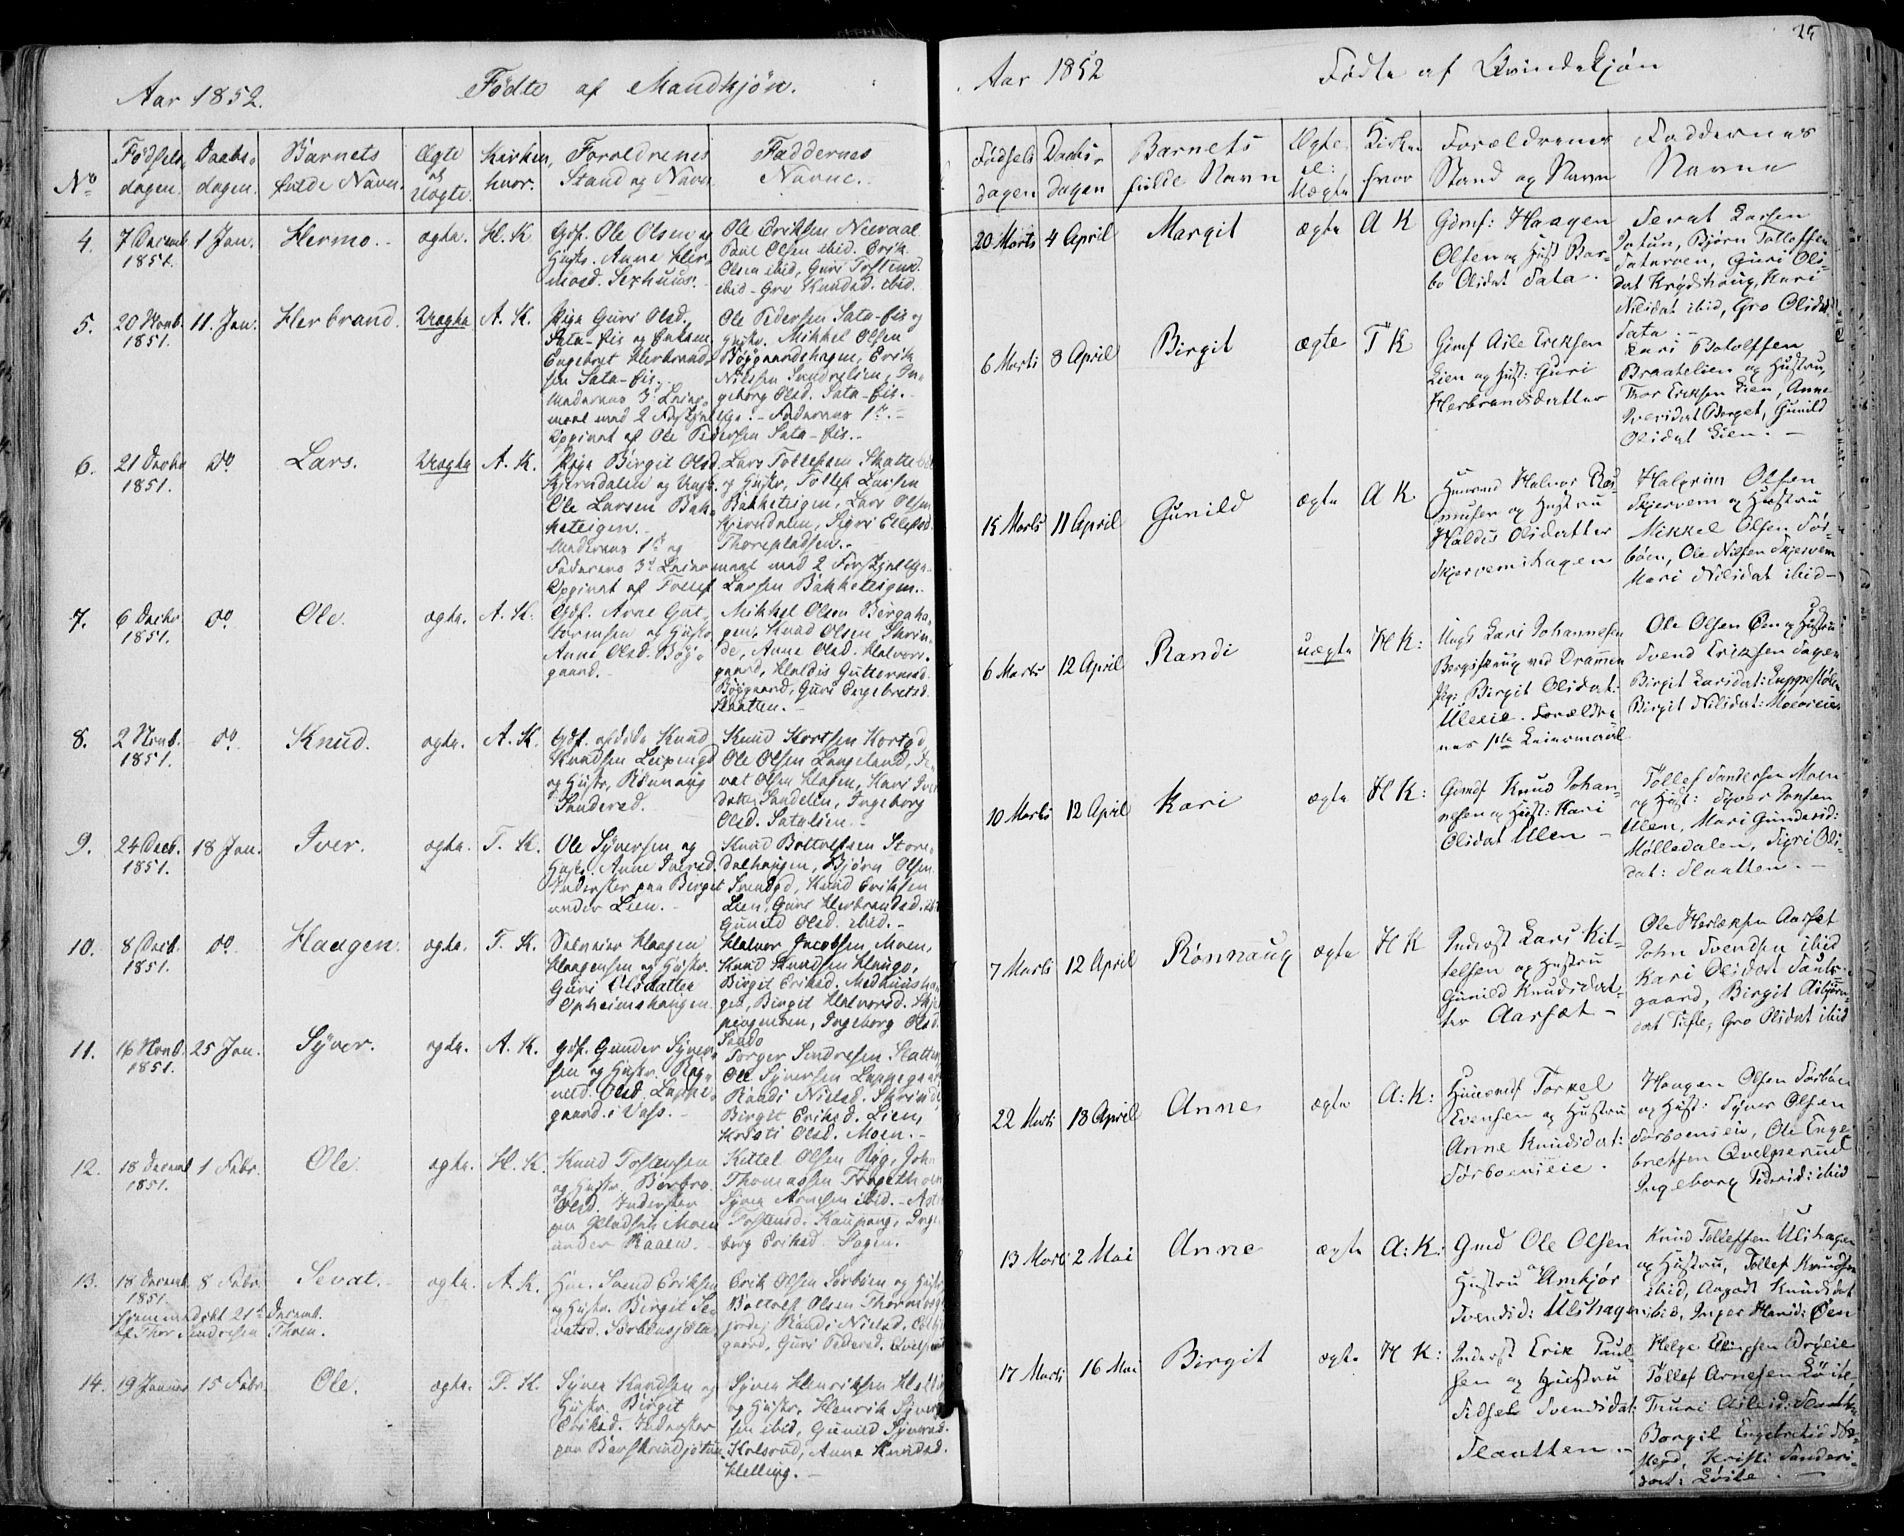 Aar 1852.
Fødte af Mandkjøn.
No
Fødsels
dagen.
Daabs
dagen.
Barnets
fulde Navn.
Ægte
el
Uægte.
Kirken,
hvor.
Foreldrenes
Stand og Navn
Faddernes
Navne.
4.
7 Decemb
1851.
1 Jan.
Hermo.
ægte.
H. K
Gdf. Ole Olsen og
Hustr. Anne Her-
mosd.
Ole Eriksen
Paul Olsen ibid. Erik
Olsen ibid, Guri Tostensd.
ibid. Gro Knudsd. ibid.
5.
20 Novb.
1851.
11 Jan.
Herbrand.
Uægte
A. K.
Pige Guri Olsd.
Sata-Eie og Enkem.
Engebret Herbrand-
sen Sata-Eie.
Ole Pedersen Sata-Eie og
Hustr. Mikkel Olsen
Bøygaardshagen, Erik
Nilssen Sundrelien, In-
geborg Olsd. Sata-Eie.
Opgivet af Ole Pedersen Sata-Eie.
6.
21 Decbr
1851.
do
Lars.
Uægte
A. K.
Pige Birgit Olsd.
og Ungk.
Ole Larsen Bak-
keteigen.
Moderens 1ste og
Faderens 3d Leiermaal med 2 Forskjellige.
Opgivet af Tollef Larsen Bakketeigen.
Lars Tollefsen
og Hustr, Tollef Larsen
Bakketeigen, Lars Olsen
Thorepladsen.
7.
6 Decbr
1851.
do
Ole.
ægte.
A. K.
Gdf. Arne Gut-
tormsen og Hustr.
Anne Olsd. Bøy-
gaard.
Mikkel Olsen Bergaha-
gen, Knud Olsen Skrin-
de, Anne Olsd. Halvors-
gaard, Haldis Guttormsd.
Bøygaard, Guri Engebretsd.
Slaatten.
8.
2 Novb.
1851.
do
Knud.
ægte.
A. K.
Gdf. afdøde Knud
Knudsen
og Hustr, Rønnaug
Sandersd.
Knud
Ole Olsen Langeland,
vat Olsen Hofsen, Kari Iver
datter Sandelien, Ingeborg
Olsd. Satalien.
9.
24 Decb.
1851.
18 Jan.
Iver.
ægte.
T. K.
Ole Syversen og
Hustr. Anne Iversd.
Inderster paa Birget
under Lien.
Knud Bottolfsen Store-
dalhaugen, Bjørn Olsen
Svendsd, Knud Eriksen
Lien, Guri Herbrandsd.
Gunild Olsd. ibid.
10.
8 Decb.
1851.
do
Haagen.
ægte.
T. K.
Selveier Haagen
Haagensen og Hustr.
Guri Olsdatter
Opheimshaugen.
Halvor Jacobsen Moen,
Knud Knudsen Haugo,
Birgit Eriksd. Medhuusha-
gen, Birgit Halvorsd.
Ingeborg Olsd.
Sando
11.
16 Novb.
1851.
25 Jan.
Syver.
ægte.
A. K.
Gdf. Gunder Syver-
sen og Hustr. Rag-
nild Olsd.
gaard i Vats.
Torger Sendresen Slatten,
Ole Syversen Luppegaard,
Randi Nielsd. Skrinde,
Birgit Eriksd. Lien,
Kristi Olsd. Moen.
12.
18 Decemb
1851.
1 Febr.
Ole.
ægte.
H. K.
Knud Tostensen
og Hustr. Barbro
Olsd. Inderster
paa Pladsen Moen
under Raaen.
Kittel Olsen Ryg, John
Thomassen
Syver Arnesen ibid.
Tostensd. Kaupang, Inge-
borg Eriksd. Hagen.
13.
18 Decemb.
1851.
8 Febr
Sevat.
ægte.
A. K.
Svend Eriksen
og Hustr. Birgit Se-
vatsd.
Hjemmedøbt 21de Decemb.
af Thor Sendresen Thoen.
Erik Olsen Sørbøen og Hustr
Bottolf Olsen
Randi Nielsd.
gaard, Guri Pedersd.
14.
19 Januar
15 Febr.
Ole.
ægte.
T. K.
Syver Knudsen og
Hustr. Birgit
Eriksd. Inderster
paa
Syver Henriksen
og Hustr, Henrik Syver-
sen ibid, Gunild Syversd.
Kolsrud, Anne Knudsd.
Helling.
25
Aar 1852
Fødte af Qvindekjøn
Fødsels
dagen
Daabs-
dagen
Barnets
fulde Navn
Ægte
el:
Uægte
Kirken
hvor
Forældrenes
Stand og Navn
Faddernes
Navne
20 Marts
4 April
Margit
ægte
A K
Gdmf: Haagen
Olsen og Hust Bar-
bo Olsdat Sata.
Sevat Larsen
Bjørn Tollefsen
Guri Ols-
dat Kari
Nilsdat ibid, Gro Olsdat
Sata.
6 Marts
8 April
Birgit
ægte
T K
Gdmf Asle Eriksen
Lien og Hust: Guri
Herbrandsdatter
Lars Botolfsen
Braatelien og Hustru,
Thor Eriksen Lien, Anne
Iversdat Berget, Gunild
Olsdat Lien.
15 Marts
11 April
Gunild
ægte
A K
Huusmd Halvor Ras-
musen og Hustru
Haldis Olsdatter
Skjervemshagen
Halgrim Olsen
Skjervem og Hustru
Mikkel Olsen Sør-
bøen, Ole Nilsen Skjervem
Mari Nilsdat ibid
6 Marts
12 April
Randi
uægte
H K:
Ungk Lars Johannesen
Bergskaug ved Drammen
Pige Birgit Olsdat:
Uleeie. Forældre-
nes 1ste Leiermaal
Ole Olsen Øen og Hustru
Svend Eriksen Hagen
Birgit Larsdat:
Birgit Nilsdat: Moeneie
10 Marts
12 April
Kari
ægte
H K:
Gdmf Knud Johan-
nesen og Hust: Kari
Olsdat Ulen
Tollef Sandersen Moen
og Hust: Syver Jonsen
Ulen, Mari Gundersd:
Mølledalen, Sigri Ols-
dat: Slaatten.
7 Marts
12 April
Rønnaug
ægte
H K
Inderst Lars Kit-
telsen og Hustru
Gunild Knudsdat-
ter Aarsæt
Ole Herleksen Aarsæt
John Svendsen ibid
Kari Olsdat
gaard, Birgit Asbjørns-
dat Tufte, Gro Olsdat ibid
22 Marts
18 April
Anne
ægte
A: K:
Huusmd Torkel
Evensen og Hustru
Anne Knudsdat:
Sørboeneie.
Haagen Olsen Sørbøen
og Hust: Syver Olsen
Sørboeneie, Ole Enge-
bretsen
Ingeborg Pedersd: ibid
13 Marts
2 Mai
Anne
ægte
A: K:
Gmd Ole Olsen
Hustru Amkjør
Svendsd: Ulshagen
Knud Tollefsen Ulshagen
og Hustru, Tollef Knudsen
ibid, Aagodt Knudsdat
ibid, Inger Haaid: Øen
17 Marts
16 Mai
Birgit
ægte
H K:
Inderst Erik Paul-
sen og Hustru
Sidsel Svendsdat
Slaatten.
Helge
Tollef Arnesen Løite
Thuri Aslesd:
Bargit Engebretsd
Kristi Sanders-
dat: Løite.